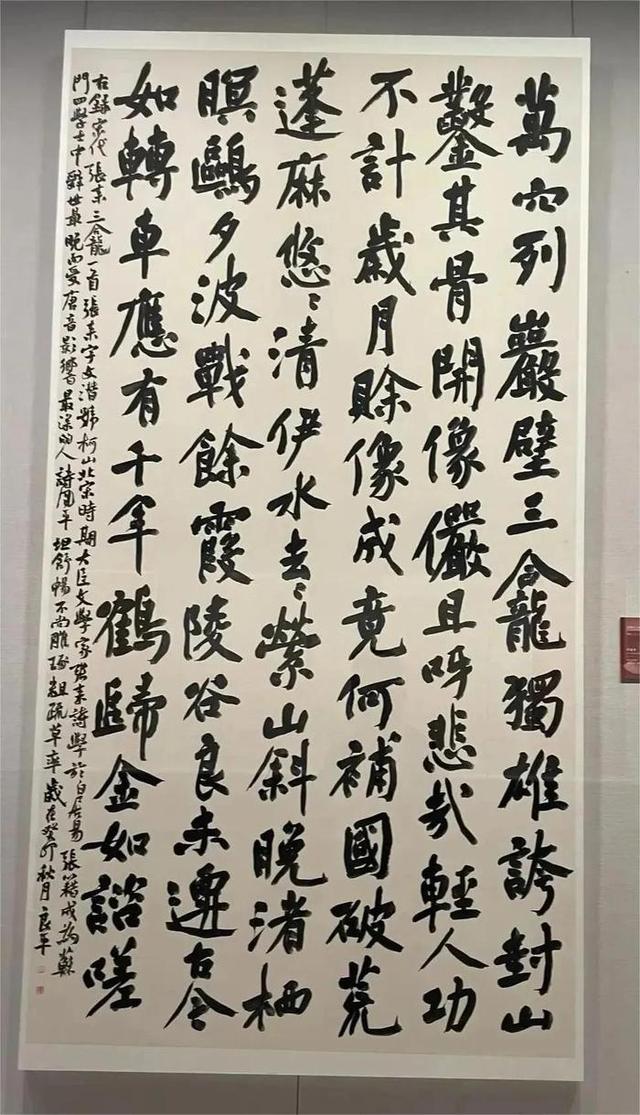 萬穴列巖壁三龕獨雄誇封山
鑿其骨開像儼且呀悲哉輕人功
不計歲月賒像成竟何補國破荒
蓬麻悠〻清伊水去〻縈山斜晚渚栖
暝鷗夕波戰餘霞陵谷良未遷古今
如轉車應有千年鶴歸金如諮嗟
右錄宋代張耒三龕一首張耒字文潛號柯山北宋時期大臣文學家張耒詩學於白居易張籍成為蘇
門四學士中辭世最晚而受唐音影響最深的人詩風平坦舒暢不尚雕琢粗疏草率歲在癸卯秋月良平